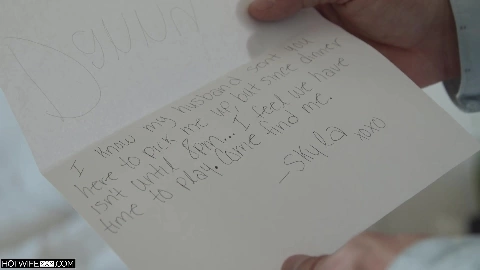 Danny
I know my husband sent you
here to pick me up, but since dinner
isn't until 8pm... I feel we have
time to play. Come find me.
-Skyla
xoxo
HOTWIFEXXX.COM